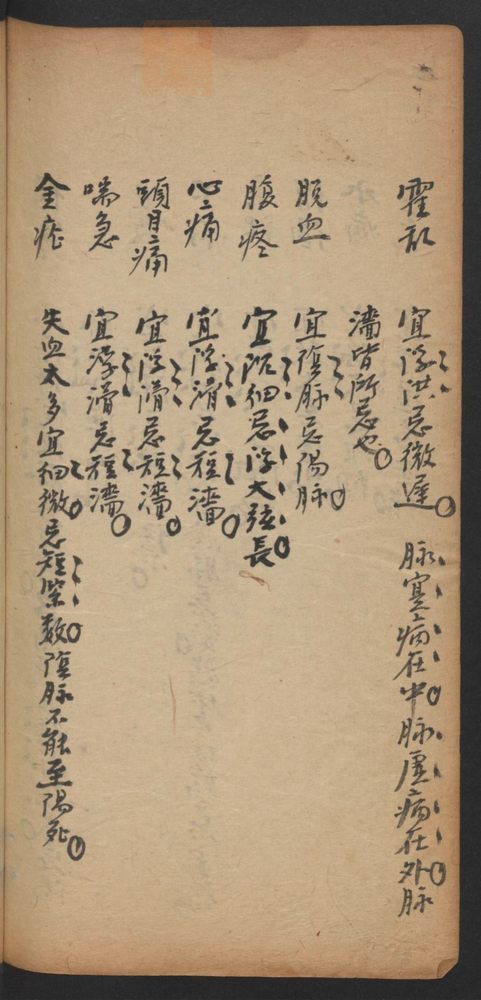 霍乱 宜浮洪忌微遲 脉实病在中脉虚病在外脉
濇皆所忌也
脱血 宜隂脉忌陽脉
腹疼 宜沉细忌浮大弦長
心痛 宜浮滑忌短濇
頭目痛 宜浮滑忌短濇
喘急 宜浮滑忌短濇
金疮 失血太多宜细微忌短紧数隂脉不能至陽死